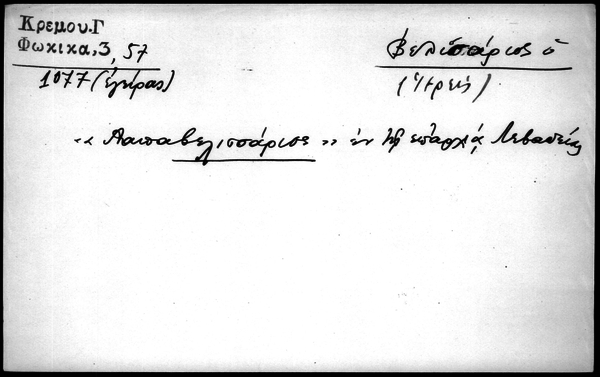 Κρεμου.Γ
Φωκικα,3, 57
1077 (ἐγείρας)
Βελισάριος ὁ
(ἱερεύς)
«Παπαβελισσάριος» ἐν τῇ ἐπαρχίᾳ Λεβαδείας